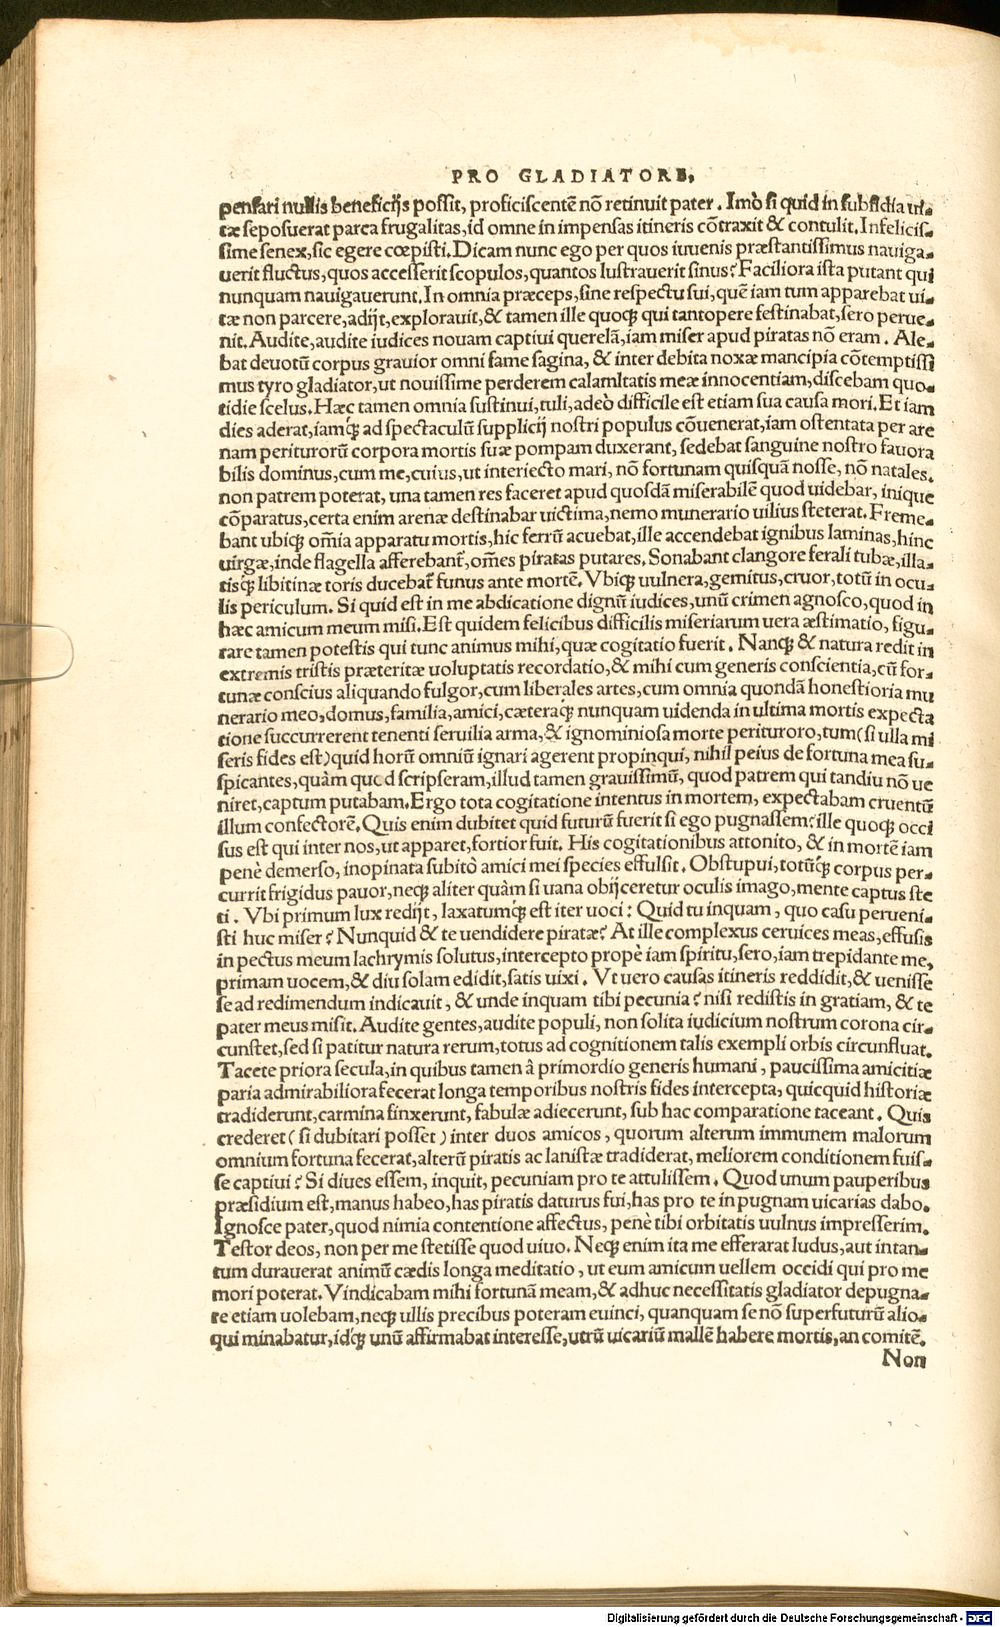 PRO GLADIATORE,
pensari nullis beneficijs possit, proficiscentē nō retinuit pater. Imò si quid in subsidia ui-
tæ seposuerat parca frugalitas, id omne in impensas itineris cōtraxit & contulit. Infelicis-
sime senex, sic egere cœpisti. Dicam nunc ego per quos iuuenis præstantissimus nauiga-
uerit fluctus, quos accesserit scopulos, quantos lustrauerit sinus? Faciliora ista putant qui
nunquam nauigauerunt. In omnia præceps, sine respectu sui, quē iam tum apparebat ui-
tæ non parcere, adijt, explorauit, & tamen ille quoqꝫ qui tantopere festinabat, sero perue-
nit. Audite, audite iudices nouam captiui querelā, iam miser apud piratas nō eram. Ale-
bat deuotū corpus grauior omni fame sagina, & inter debita noxæ mancipia cōtemptissi
mus tyro gladiator, ut nouissime perderem calamItatis meæ innocentiam, discebam quo-
tidie scelus. Hæc tamen omnia sustinui, tuli, adeò difficile est etiam sua causa mori. Et iam
dies aderat, iamqꝫ́ ad spectaculū supplicij nostri populus cōuenerat, iam ostentata per are
nam periturorū corpora mortis suæ pompam duxerant, sedebat sanguine nostro fauora
bilis dominus, cum me, cuius, ut interiecto mari, nō fortunam quisquā nosse, nō natales,
non patrem poterat, una tamen res faceret apud quosdā miserabilē quod uidebar, inique
cōparatus, certa enim arenæ destinabar uictima, nemo munerario uilius steterat. Freme-
bant ubiqꝫ om̄ia apparatu mortis, hic ferrū acuebat, ille accendebat ignibus laminas, hinc
uirgæ, inde flagella afferebant̄, om̄es piratas putares. Sonabant clangore ferali tubæ, illa-
tisqꝫ́ libitinæ toris ducebat̄ funus ante mortē. Vbiqꝫ uulnera, gemitus, cruor, totū in ocu-
lis periculum. Si quid est in me abdicatione dignū iudices, unū crimen agnosco, quod in
hæc amicum meum misi. Est quidem felicibus difficilis miseriarum uera æstimatio, figu-
rare tamen potestis qui tunc animus mihi, quæ cogitatio fuerit. Nanqꝫ & natura redit in
extremis tristis præteritæ uoluptatis recordatio, & mihi cum generis conscientia, cū for-
tunæ conscius aliquando fulgor, cum liberales artes, cum omnia quondā honestioria mu
nerario meo, domus, familia, amici, cæteraqꝫ́ nunquam uidenda in ultima mortis expecta
tione succurrerent tenenti seruilia arma, & ignominiosa morte perituroro, tum (si ulla mi
seris fides est) quid horū omniū ignari agerent propinqui, nihil peius de fortuna mea su-
spicantes, quàm quod scripseram, illud tamen grauissimū, quod patrem qui tandiu nō ue
niret, captum putabam. Ergo tota cogitatione intentus in mortem, expectabam cruentū
illum confectorē. Quis enim dubitet quid futurū fuerit si ego pugnassem? ille quoqꝫ occi
sus est qui inter nos, ut apparet, fortior fuit. His cogitationibus attonito, & in mortē iam
penè demerso, inopinata subitò amici mei species effulsit. Obstupui, totūqꝫ́ corpus per-
currit frigidus pauor, neqꝫ aliter quàm si uana obijceretur oculis imago, mente captus ste
ti. Vbi primum lux redijt, laxatumqꝫ́ est iter uoci: Quid tu inquam, quo casu perueni-
sti huc miser? Nunquid & te uendidere piratæ? At ille complexus ceruices meas, effusis
in pectus meum lachrymis solutus, intercepto propè iam spiritu, sero, iam trepidante me,
primam uocem, & diu solam edidit, satis uixi. Vt uero causas itineris reddidit, & uenisse
se ad redimendum indicauit, & unde inquam tibi pecunia? nisi redistis in gratiam, & te
pater meus misit. Audite gentes, audite populi, non solita iudicium nostrum corona cir-
cunstet, sed si patitur natura rerum, totus ad cognitionem talis exempli orbis circunfluat.
Tacete priora secula, in quibus tamen â primordio generis humani, paucissima amicitiæ
paria admirabiliora fecerat longa temporibus nostris fides intercepta, quicquid historiæ
tradiderunt, carmina finxerunt, fabulæ adiecerunt, sub hac comparatione taceant. Quis
crederet (si dubitari posset) inter duos amicos, quorum alterum immunem malorum
omnium fortuna fecerat, alterū piratis ac lanistæ tradiderat, meliorem conditionem fuis-
se captiui? Si diues essem, inquit, pecuniam pro te attulissem. Quod unum pauperibus
præsidium est, manus habeo, has piratis daturus fui, has pro te in pugnam uicarias dabo.
Ignosce pater, quod nimia contentione affectus, penè tibi orbitatis uulnus impresserim.
Testor deos, non per me stetisse quod uiuo. Neqꝫ enim ita me efferarat ludus, aut intan-
tum durauerat animū cædis longa meditatio, ut eum amicum uellem occidi qui pro me
mori poterat. Vindicabam mihi fortunā meam, & adhuc necessitatis gladiator depugna-
re etiam uolebam, neqꝫ ullis precibus poteram euinci, quanquam se nō superfuturū alio-
qui minabatur, idqꝫ́ unū affirmabat interesse, utrū uicariū mallē habere mortis, an comitē.
Non
Digitalisierung gefördert durch die Deutsche Forschungsgemeinschaft - DFG